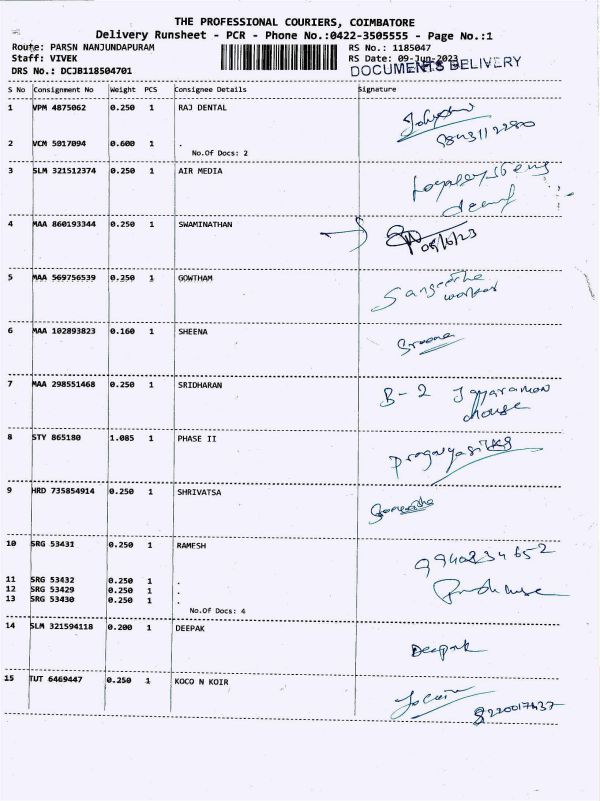 THE PROFESSIONAL COURIERS, COIMBATORE
Delivery Runsheet - PCR - Phone No.:0422-3505555 - Page No.:1
Route: PARSN NANJUNDAPURAM RS No.: 1185047
Staff: VIVEK RS Date: 09-Jun-2023
DRS No.: DCJB118504701 DOCUMENTS DELIVERY
S No Consignment No Weight PCS Consignee Details Signature
1 VPM 4875062 0.250 1 RAJ DENTAL
9843112280
2 VCM 5017094 0.600 1 .
No.Of Docs: 2
3 SLM 321512374 0.250 1 AIR MEDIA
4 MAA 860193344 0.250 1 SWAMINATHAN
09/6/23
5 MAA 569756539 0.250 1 GOWTHAM
Sangeetha
6 MAA 102893823 0.160 1 SHEENA
7 MAA 298551468 0.250 1 SRIDHARAN
B-2 Jayaraman
house
8 STY 865180 1.085 1 PHASE II
9 HRD 735854914 0.250 1 SHRIVATSA
10 SRG 53431 0.250 1 RAMESH
9940234652
11 SRG 53432 0.250 1 .
12 SRG 53429 0.250 1 .
13 SRG 53430 0.250 1 .
No.Of Docs: 4
14 SLM 321594118 0.200 1 DEEPAK
Deepak
15 TUT 6469447 0.250 1 KOCO N KOIR